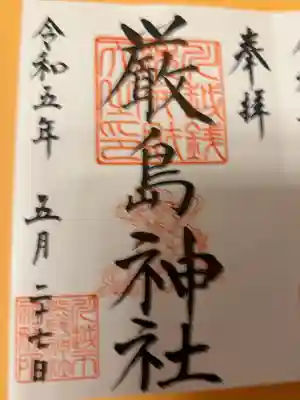 奉拝
厳島神社
令和五年 五月 二十七日